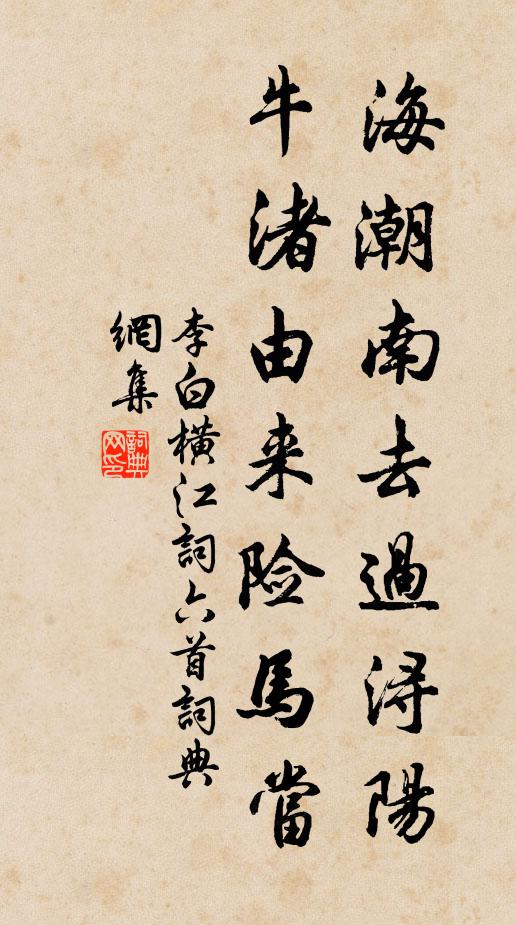 海潮南去過浔陽
牛渚由来险馬當
李白橫江詞六首詞典
網集
詞典网印